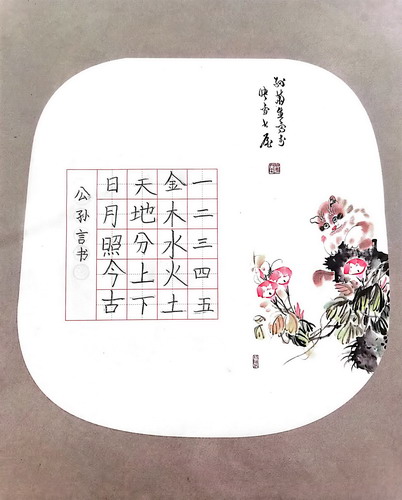 一二三四五
金木水火土
天地分上下
日月照今古
公孙言书